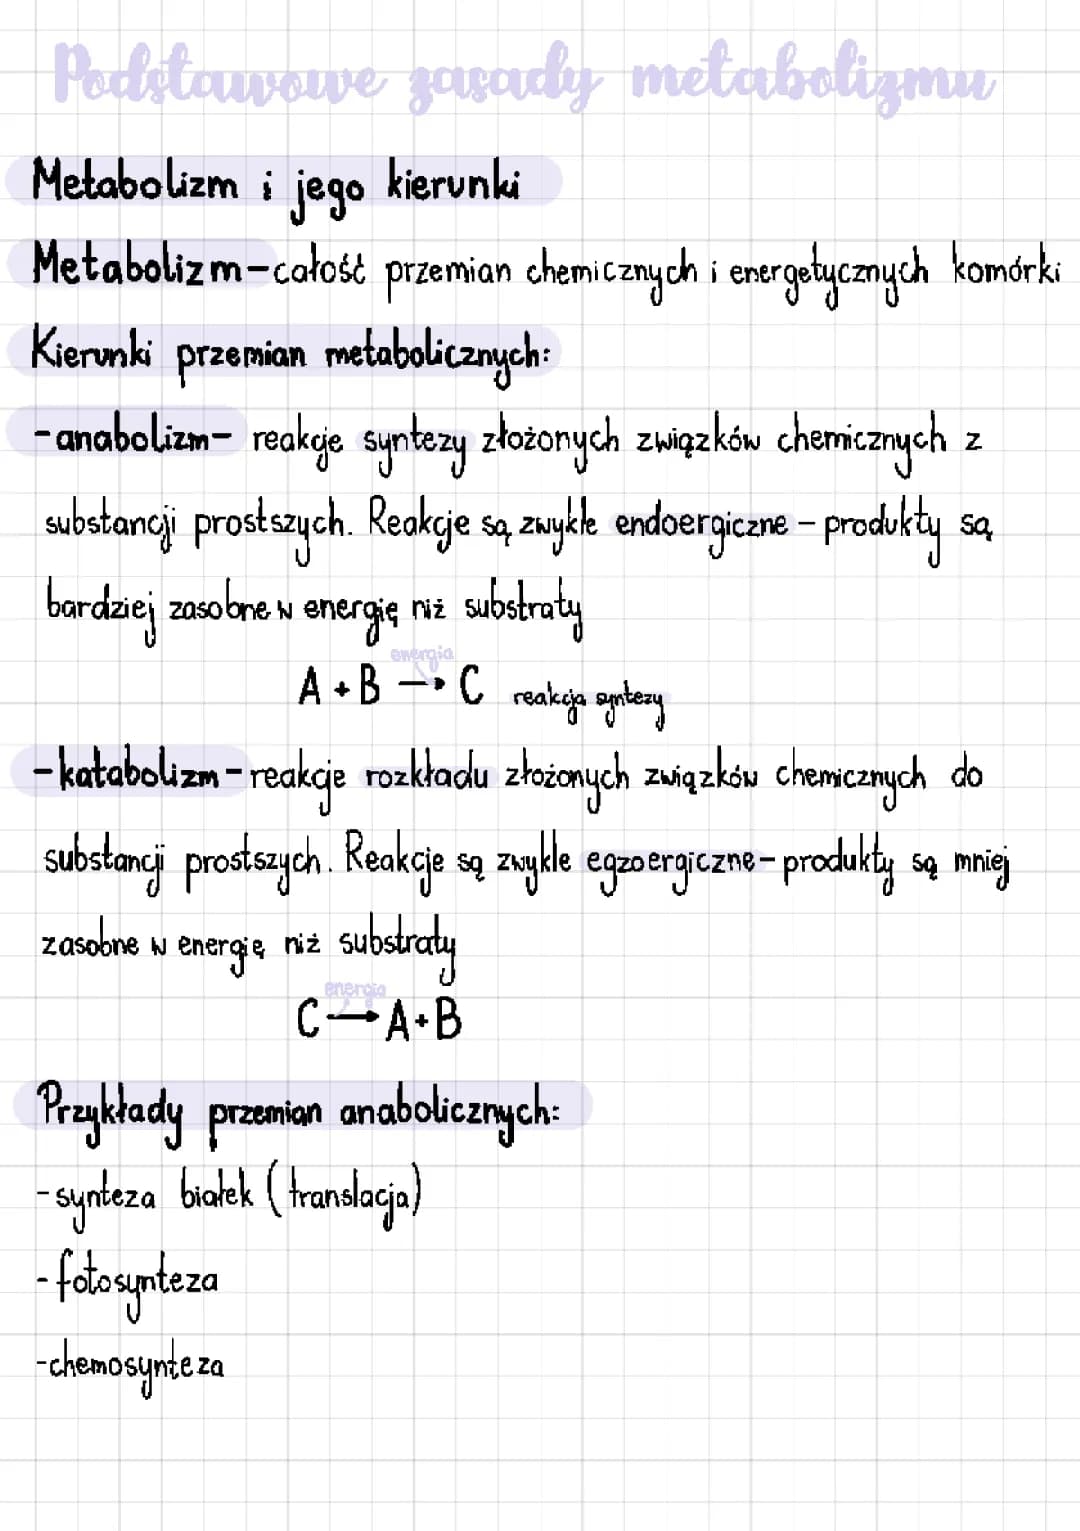 Podstawowe zasady metabolizmu
Metabolizm i jego kierunki
Metabolizm-całość przemian chemicznych i energetycznych komórki
Kierunki przemian metabolicznych:
-anabolizm- reakcje syntezy złożonych związków chemicznych z
substancji prostszych. Reakcje są zwykle endoergiczne - produkty są
bardziej zasobne w energię niż substraty
energia
A + B → C reakcja syntezy
-katabolizm-reakcje rozkładu złożonych związków chemicznych do
substancji prostszych. Reakcje są zwykle egzoergiczne-produkty są mniej
zasobne w energię niż substraty
energia
C → A+B
Przykłady przemian anabolicznych:
-synteza białek (translacja)
-fotosynteza
-chemosynteza